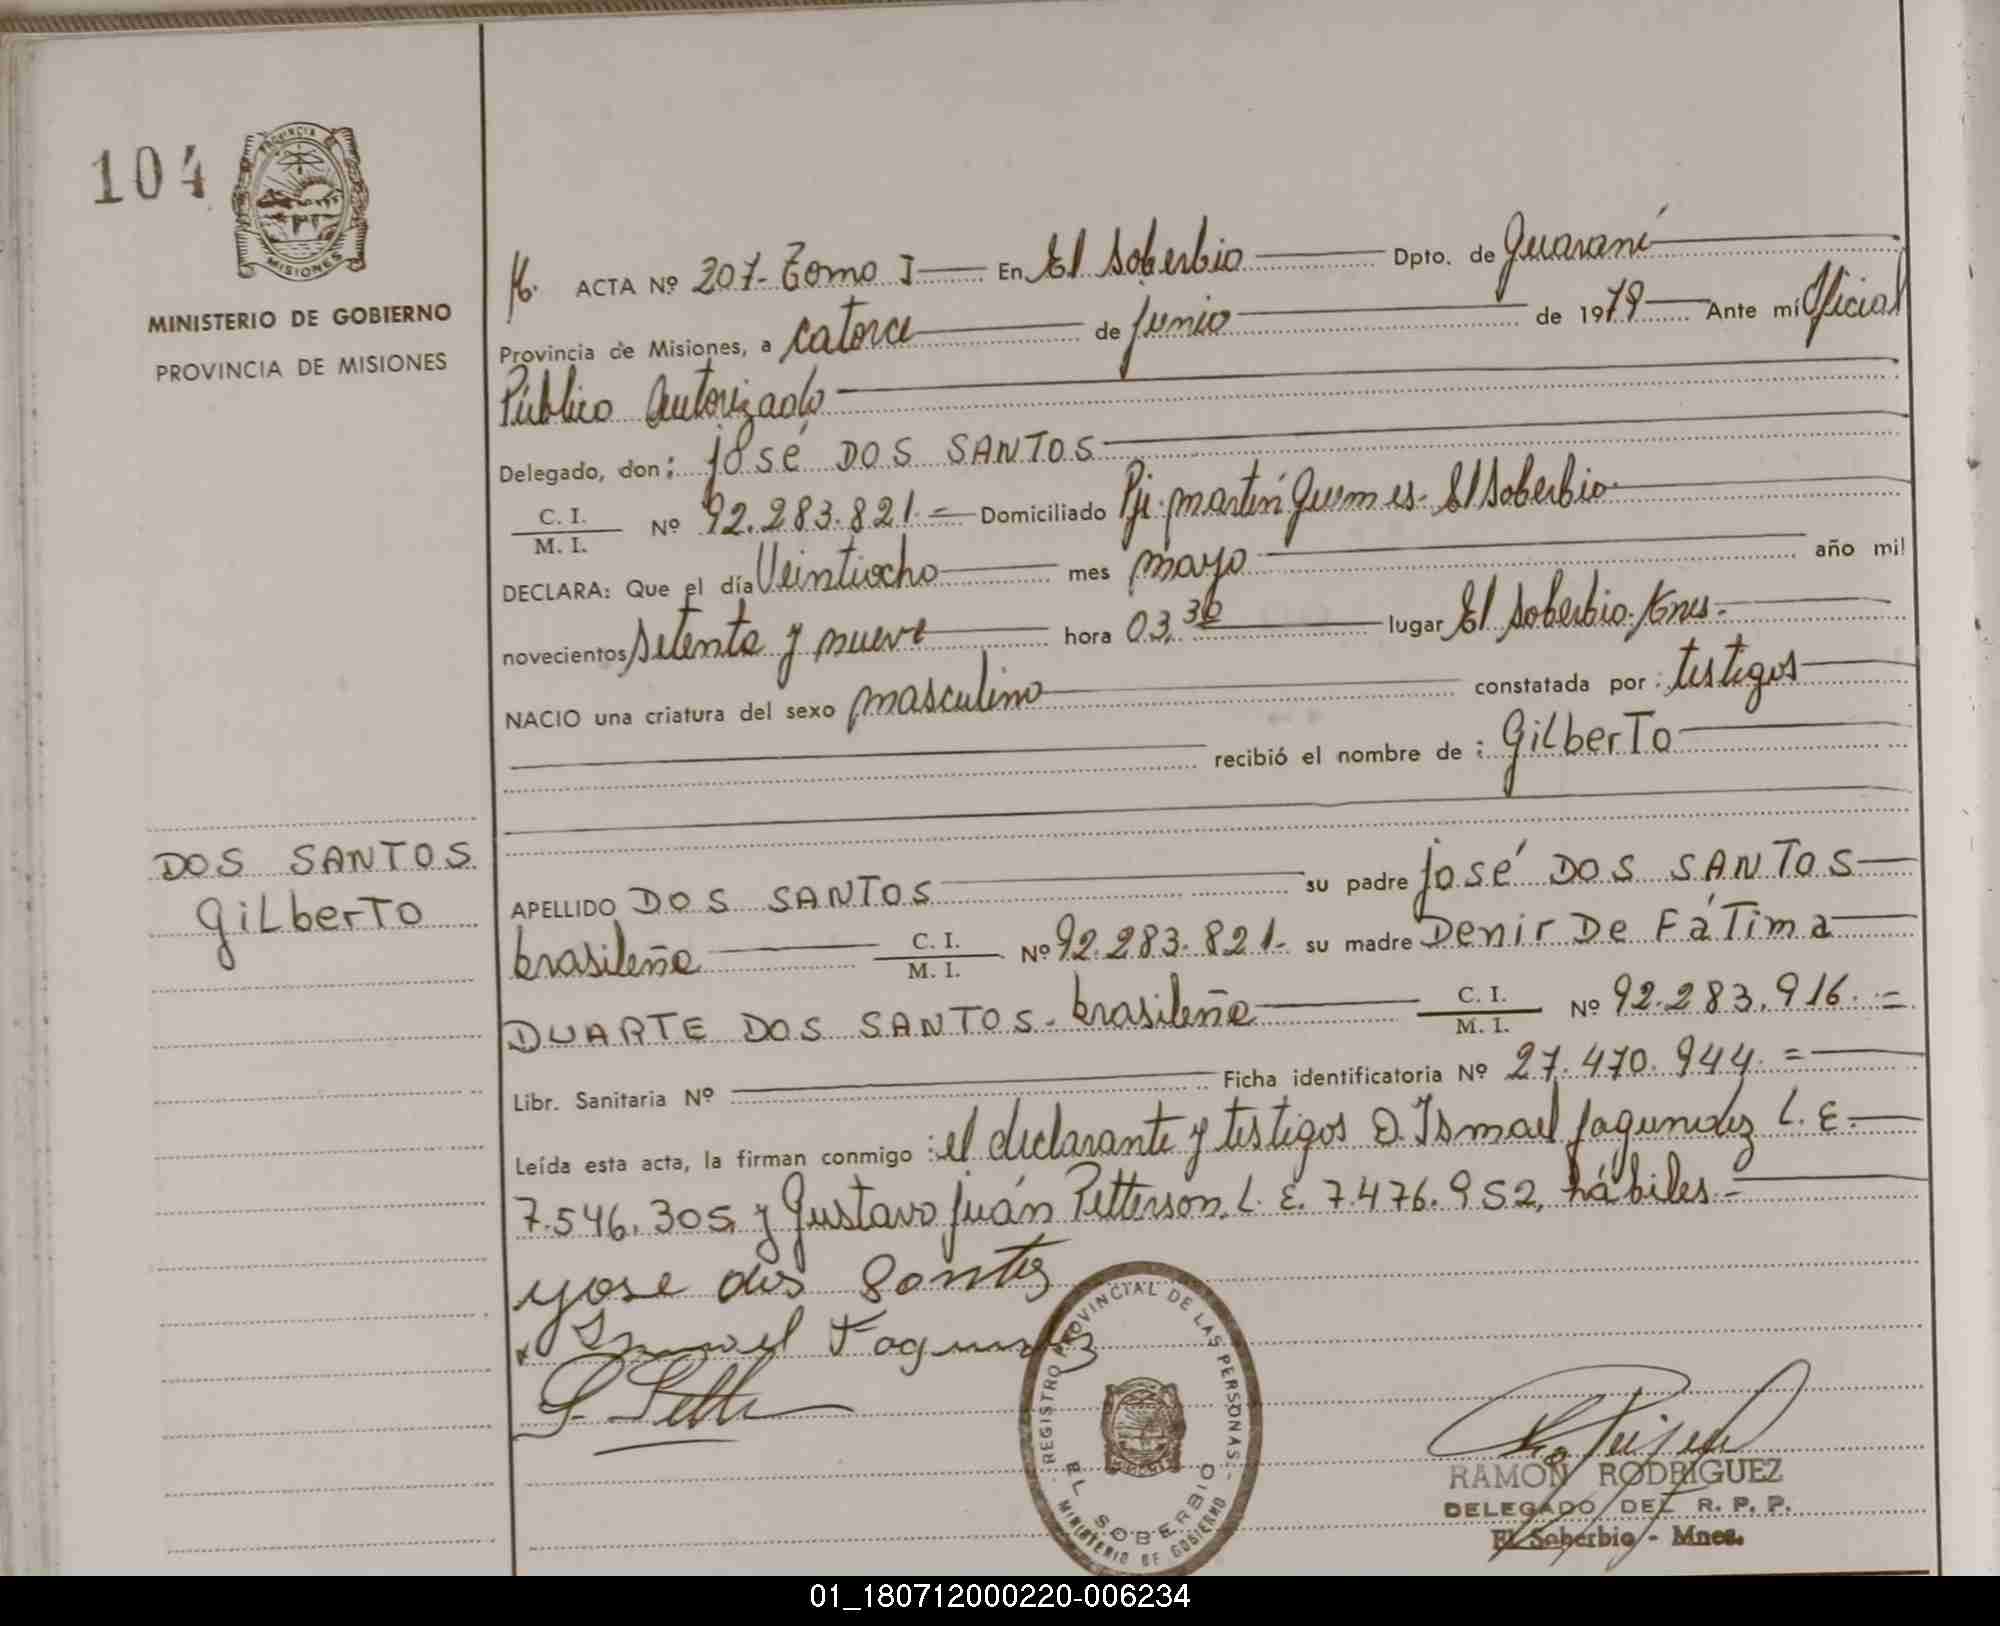 104
PROVINCIA
MISIONES
MINISTERIO DE GOBIERNO
PROVINCIA DE MISIONES
ACTA Nº 207- Tomo I En El Soberbio Dpto. de Guaraní
Provincia de Misiones, a catorce de junio de 1979 Ante mí Oficial
Público Autorizado
Delegado, don: José DOS SANTOS
C. I. / M. I. Nº 92.283.821.= Domiciliado Pje. Martín Guemes- El Soberbio-
DECLARA: Que el día Veintiocho mes mayo año mil
novecientos setenta y nueve hora 03,30 lugar El Soberbio-Mnes-
NACIO una criatura del sexo masculino constatada por: testigos
recibió el nombre de: Gilberto
DOS SANTOS
Gilberto
APELLIDO DOS SANTOS su padre José DOS SANTOS
brasileña C. I. / M. I. Nº 92.283.821- su madre Denir De Fátima
DUARTE DOS SANTOS- brasileña C. I. / M. I. Nº 92.283.916.=
Libr. Sanitaria Nº Ficha identificatoria Nº 27.470.944.=
Leída esta acta, la firman conmigo: el declarante y testigos D. Ismael Fagundez L. E.
7.546.305, y Gustavo Juán Petterson, L. E. 7.476.952, hábiles.-
yose dos Santos
x Ismael Fagundez
REGISTRO PROVINCIAL DE LAS PERSONAS
EL SOBERBIO
MINISTERIO DE GOBIERNO
RAMON RODRIGUEZ
DELEGADO DEL R. P. P.
El Soberbio - Mnes.
01_180712000220-006234